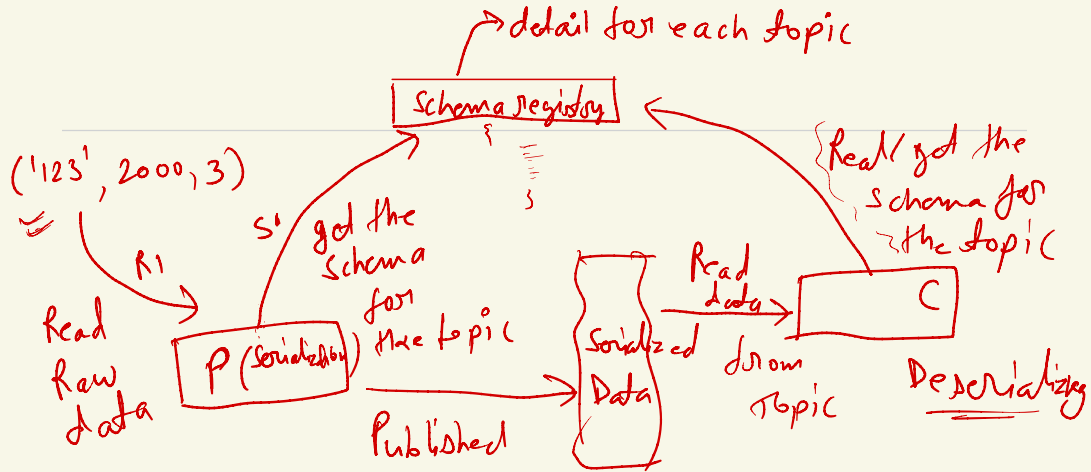 detail for each topic
Schema registry
{
}
('123', 2000, 3)
R1
Read
Raw
data
S1
get the
schema
for
the topic
P (Serialization)
Published
Serialized
Data
Read
data
from
Topic
Read/get the
schema for
the topic
C
Deserializing